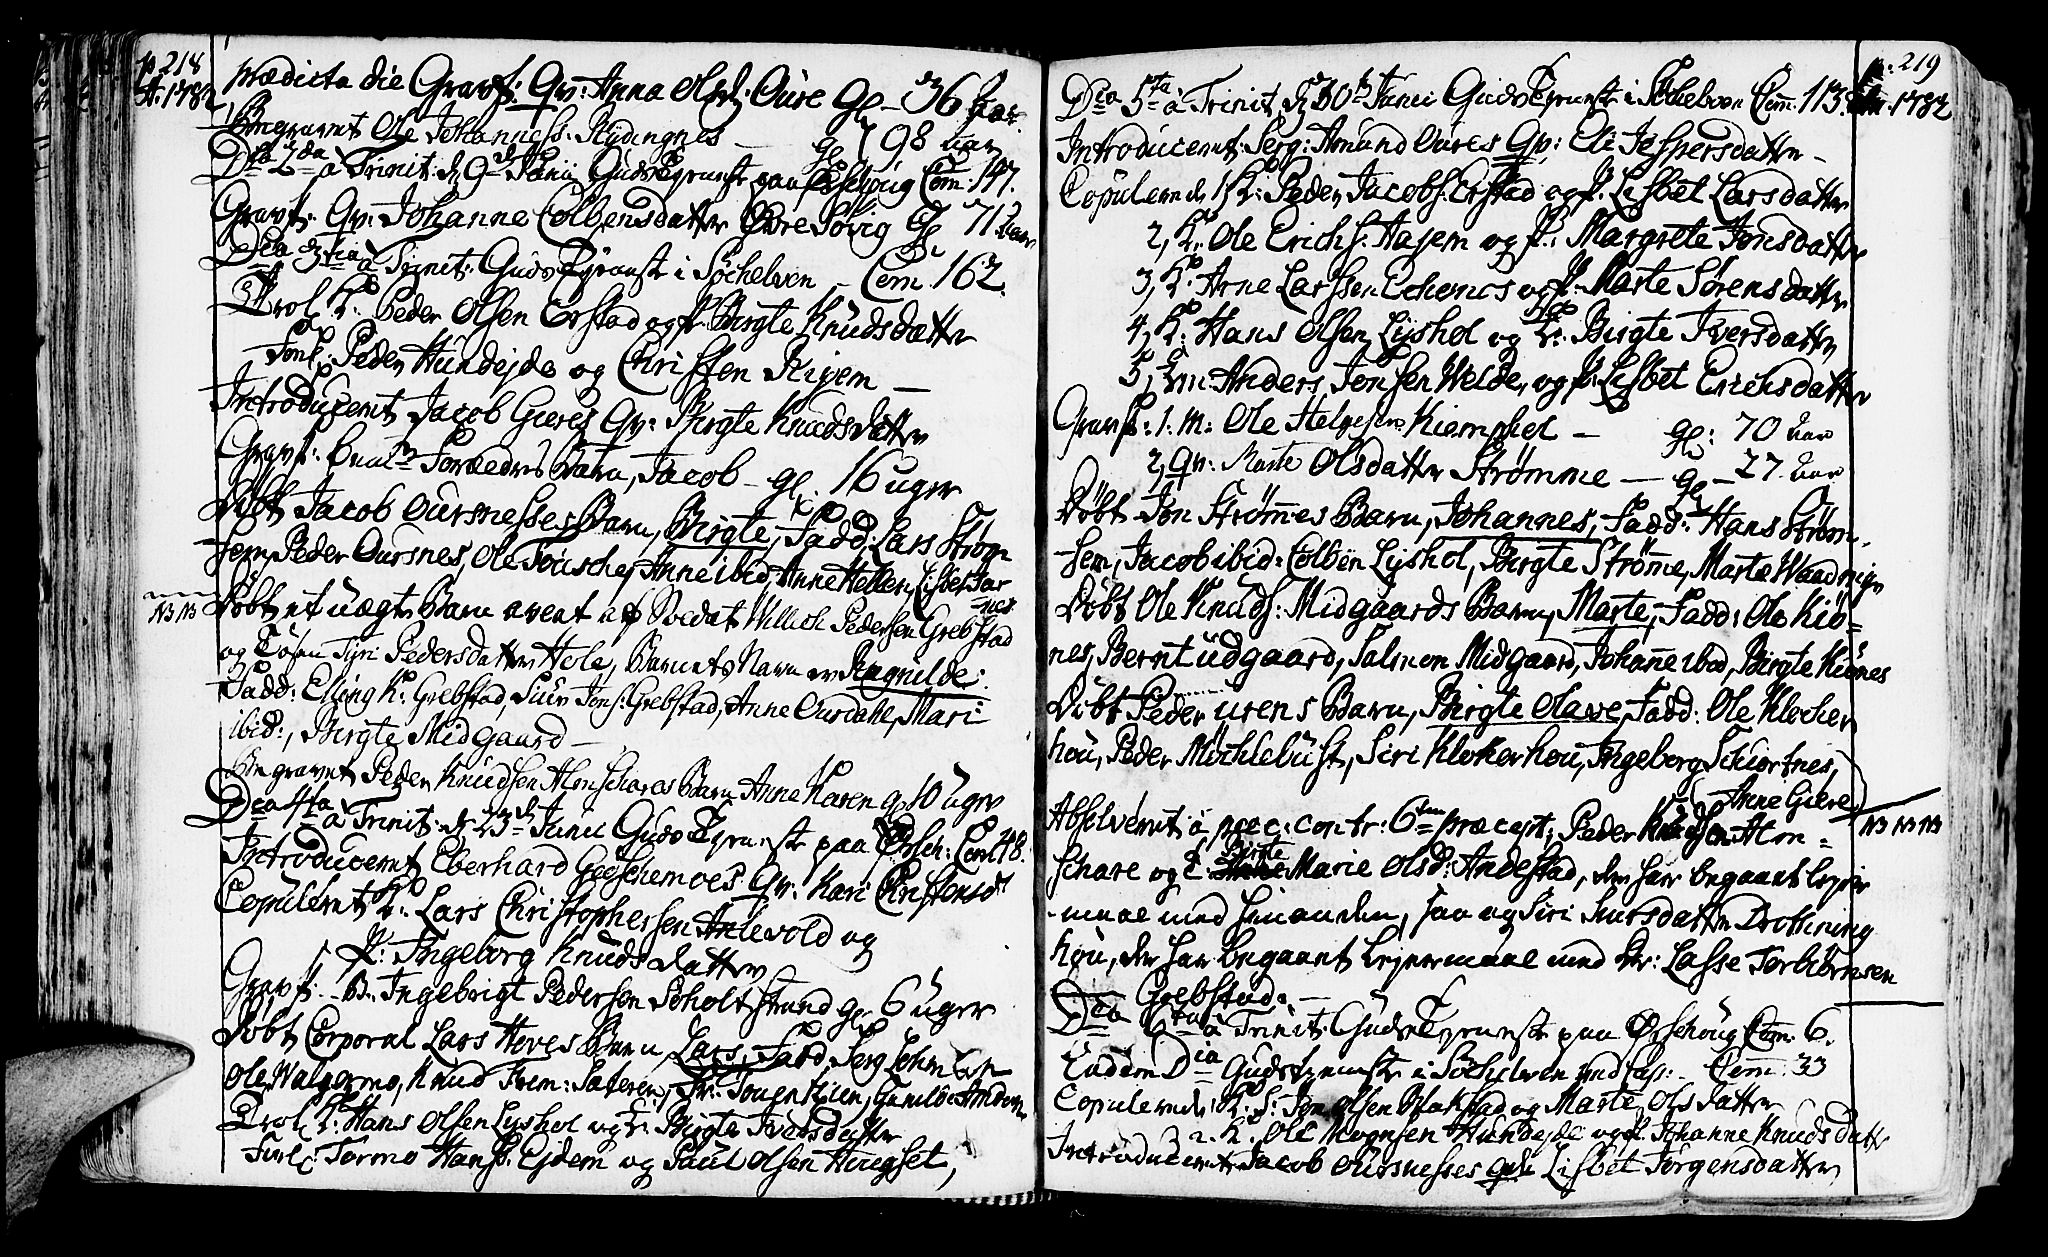 p. 218
A: 1782
Prædicta die Gravf: Qv: Anna Olsd: Oure gl. 36 Aar.
Begravet Ole Johanness: Rydingnes – gl 98 aar
Dca 2da à Trinit: d 9d Junii Guds Tjeneste paa Com: 147.
Gravf: Qv: Johanne Colbensdatter Øvre Søvig gl 71 2 Aar
Dca 3tia à Trinit: Guds Tjeneste i Søchelven – Com. 162.
Trol K: Peder Olsen Erstad og P: Birgte Knudsdatter
Forl: Peder Hundejde og Christen Rijem –
Introduceret Jacob Gieres Qv: Birgte Knudsdatter
Gravf: Barn, Jacob – gl. 16 uger
Døbt Jacob Oursnesses Barn, Birgte, Fadd: Lars Strøm
-hem, Peder Oursnes, Ole Tousche, Anne ibid, Anne Hellen, Lisbet Aar
-nes
NB NB Døbt et uægte Barn avlet af Soldat Willich Pedersen Grebstad
og Tøsen Syri Pedersdatter Hole, Barnets Navn er Ragnilde.
Fadd: Elling K: Grebstad, Siur Jons: Grebstad, Anne Ourdahl, Mari
ibid:, Birgte Midgaard –
Begravet Peder Knudsen Almschares Barn Anne Karen gl 10 uger
Dca 4ta à Trinit: d 23d Junii Guds Tjeneste paa Ørsch: Com 48.
Introduceret Eberhard Giæschemoes Qv: Kari Christensd
Copuleret K: Lars Christophersen Anlevold og
P: Ingeborg Knudsdatter
Gravf: – B: Ingebrigt Pedersen Soholtstrand gl 6 uger
Døbt Corporal Lars Hoves Barn, Lars, Fadd, Serg
Ole Walgermo, Knud Frem: Sæteren,
Trol K: Hans Olsen Lyshol og P: Birgte Iversdatter
Forl: Tormo Hans: Ejdem og Paul Olsen Haugset,
p: 219
A: 1782
Dca 5ta à Trinit d 30te Junii Guds Tjeneste i Søchelven Com. 113.
Introduceret Serg: Amund Oures Qv: Eli Jespersdatter –
Copulerede 1, K: Peder Jacobs: Erstad og P. Lisbet Larsdatter
2, K. Ole Erichs: Hasem og P: Margrete Jonsdatter
3, K. Arne Larssen Echenes og P. Marte Sørensdatter
4, K: Hans Olsen Lyshol og P: Birgte Iversdatter
5, Em: Anders Jonsen Welde, og P: Lisbet Erichsdatter
Gravf: 1. m: Ole Helgesen Kiemphol – gl: 70 aar
2, Qv: Marte Olsdatter Strømme – gl – 27. aar
Døbt Jon Strømmes Barn, Johannes, Fadd: Hans Strøm-
-hem, Jacob ibid: Colben Lyshol, Birgte Strøme, Marte
Døbt Ole Knuds: Midgaards Barn, Marte, Fadd: Ole Kiø=
nes, Bernt Udgaard, Salmon Midgaard, Johane ibid, Birgte Kiønes
Døbt Peder Urens Barn, Birgte Olave, Fadd: Ole Klocker
hou, Peder Møchlebust, Siri Klokerhou, Ingeborg Schiortnes,
Anne Giere
Absolveret à pecc: contr: 6tum præcept: Peder Knudsen Alm= NB NB NB
schare og T Birgte Marie Olsd: Andestad, der har begaaet lejer
-maal med hinanden, saa og Siri Siursdatter Drotning
hou, der har begaaet Lejermaal med Kr: Lasse Torbiørnsen
Grebstad. –
Dca 6ta à Trinit: Guds Tjeneste paa Ørschoug Com: 6.
Eadem Dia Gudstjeneste i Søchelven ved Cap: – Com: 33
Copulerede: K. S: Jon Olsen Blakstad og Marte Olsdatter
2. K. Ole Mognsen Hundejde og P. Johanne Knudsdatt
Introduceret Jacob Oursnesses Qv: Lisbet Jørgensdatter